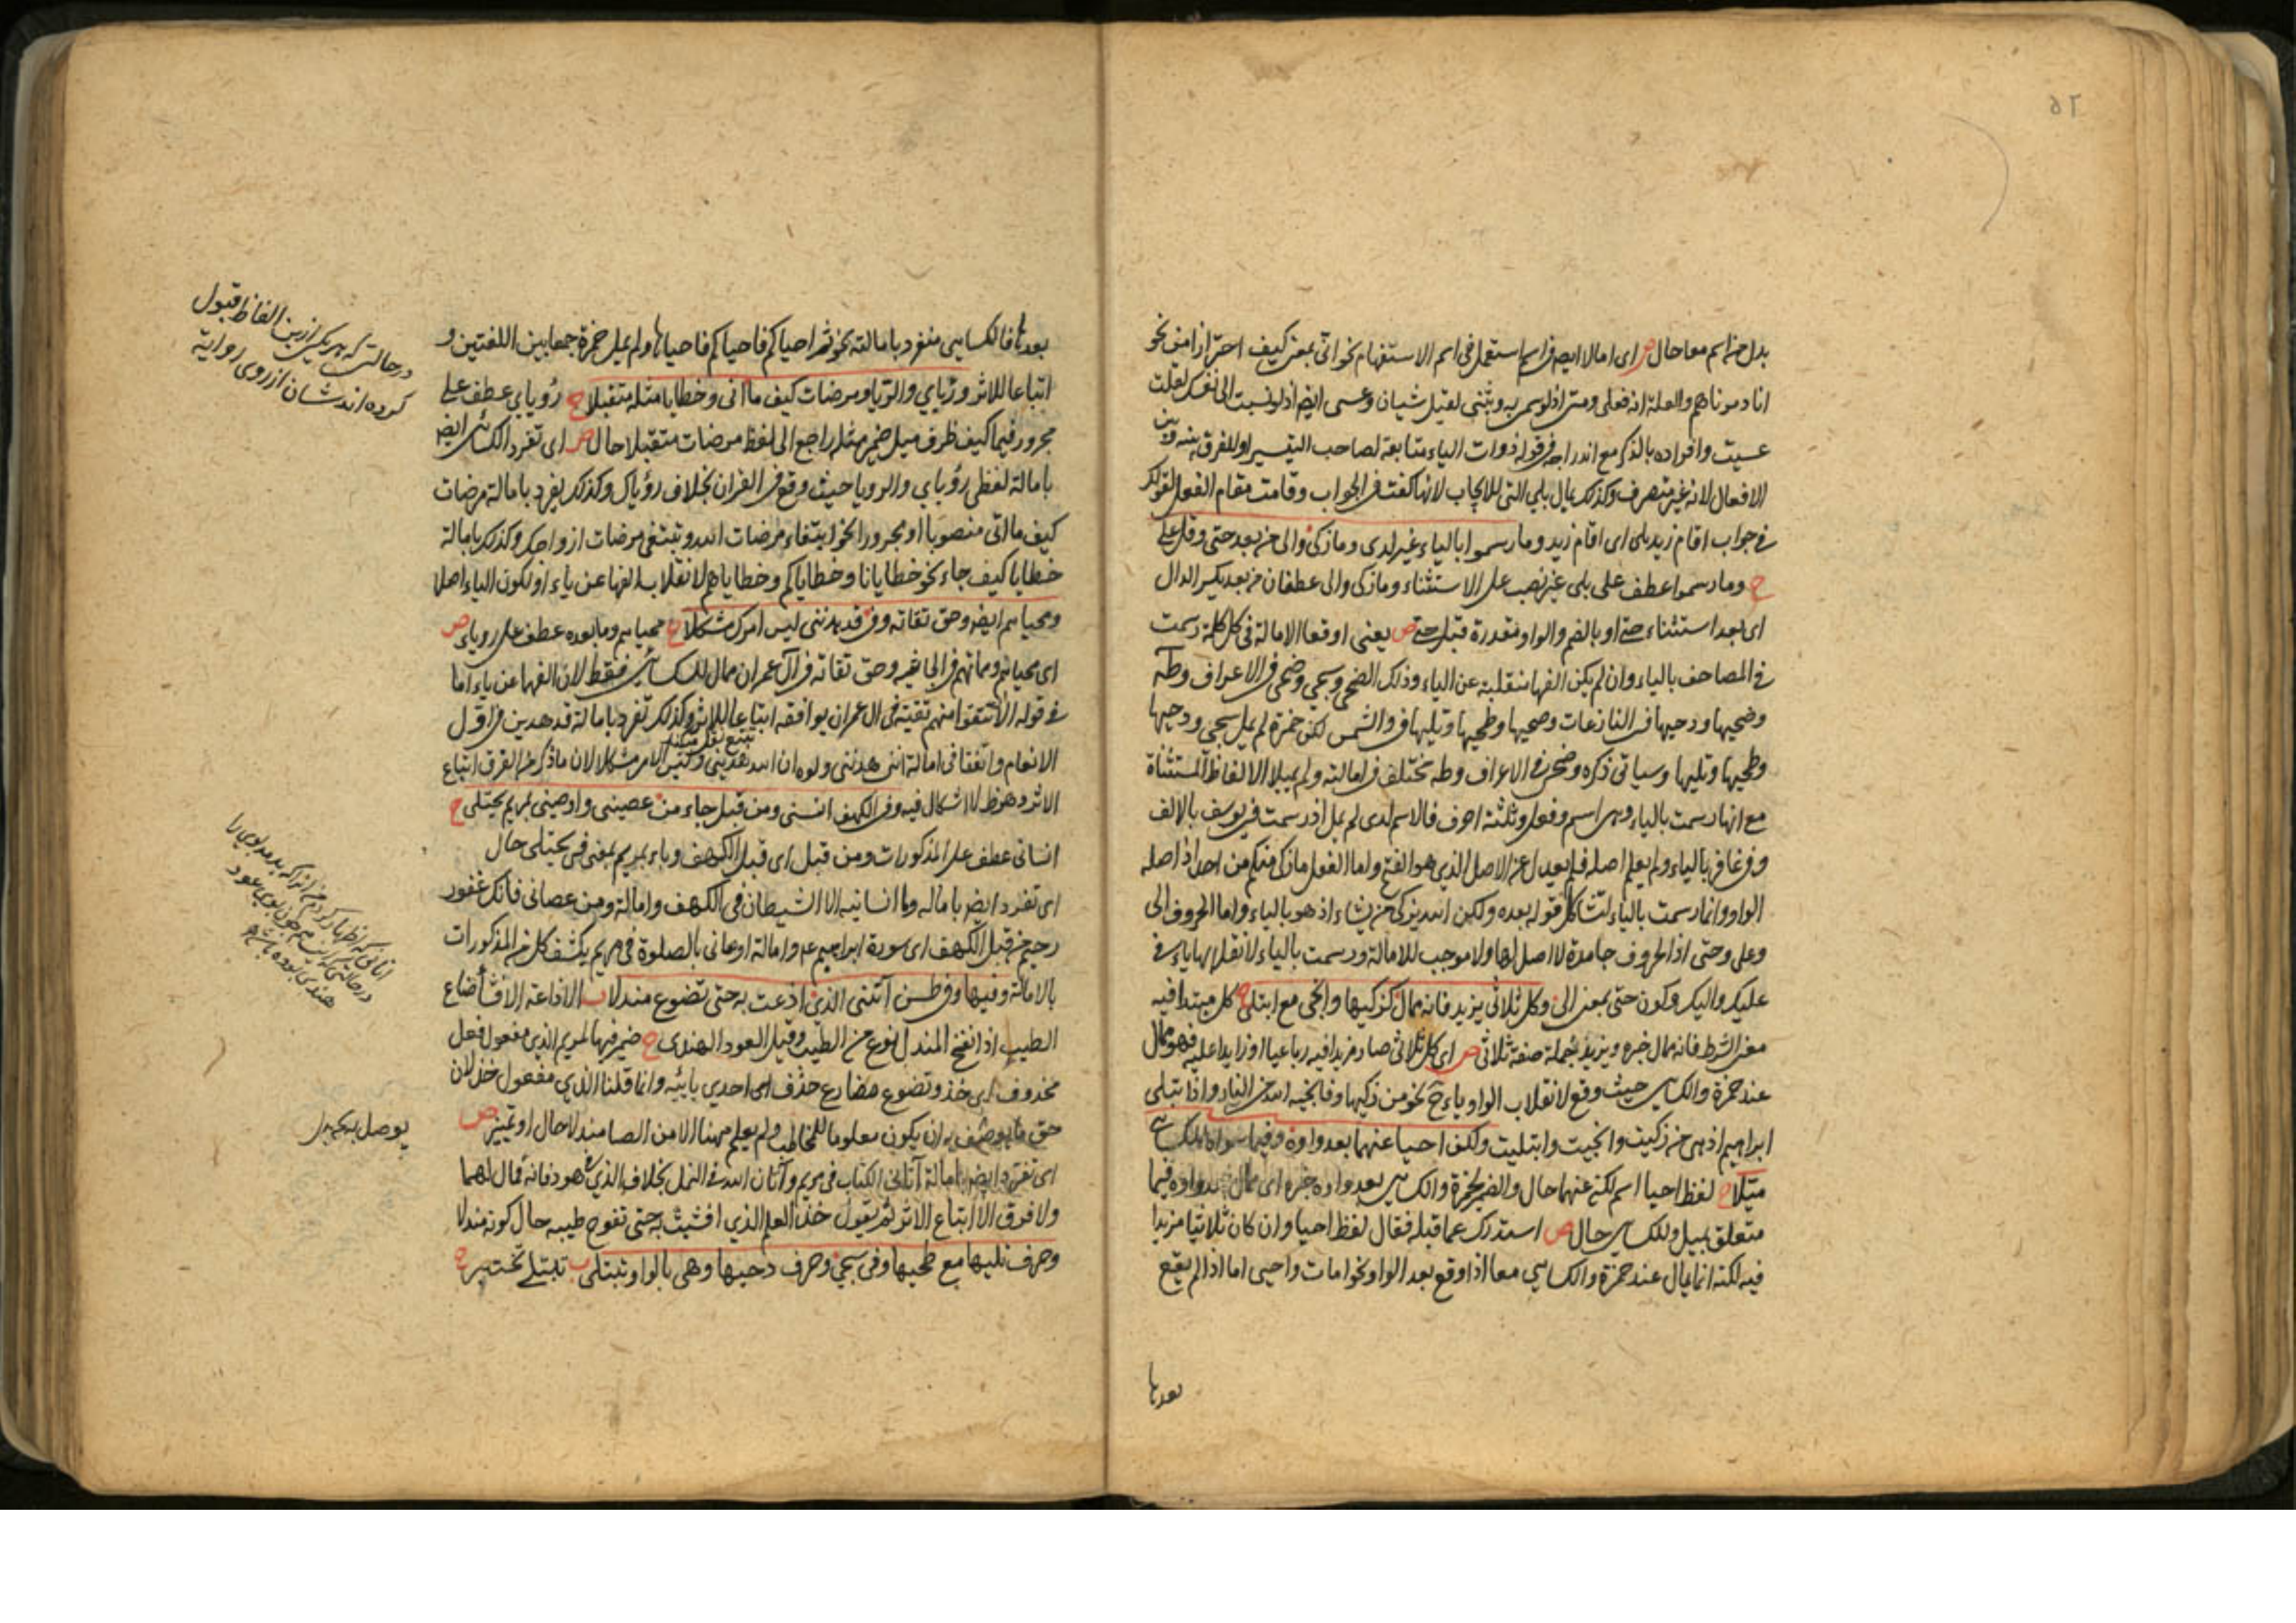 بدل من اسم معا حال ص ای امالا ایضا فی اسم استعمل فی اسم الاستفهام نحو انی بمعنی کیف احترازا من نحو
انا دمرناهم والعلة انه فعلی ومتی اذ لو سمی به وثنی لقیل متیان وعسی ایضا اذ لو نسبت الی نفسک لقلت
عسیت وافراده بالذکر مع اندراجه فی قوله ذوات الیاء متابعة لصاحب التیسیر او للفرق بینه وبین
الافعال لانه غیر متصرف وکذلک یمال بلی التی للایجاب لانها کفت فی الجواب وقامت مقام الفعل لقولک
فی جواب اقام زید بلی ای اقام زید وما رسموا بالیاء غیر لدی وما زکی والی من بعد حتی وقل علی
ح وما رسموا عطف علی بلی غیر نصب علی الاستثناء وما زکی والی عطفان من بعد بکسر الدال
ای بعد استثناء حتی او بالضم والواو مقدرة قبل حتی ص یعنی اوقعا الامالة فی کل کلمة رسمت
فی المصاحف بالیاء وان لم یکن الفها منقلبة عن الیاء وذلک الضحی وسجی وضحی فی الاعراف وطه
وضحیها ودحیها فی النازعات وضحیها وطحیها وتلیها فی والشمس لکن حمزة لم یمل سجی ودحیها
وطحیها وتلیها وسیاتی ذکره وضحی فی الاعراف وطه مختلف فی امالته ولم یمیلا الالفاظ المستثناة
مع انها رسمت بالیاء وهی اسم وفعل وثلثة احرف فالاسم لدی لم یمل اذ رسمت فی یوسف بالالف
وفی غافر بالیاء ولم یعلم اصله فلم یعدل عن الاصل الذی هو الفتح واما الفعل ما زکی منکم من احد اذ اصله
الواو وانما رسمت بالیاء لتشاکل قوله بعده ولکن الله یزکی من یشاء اذ هو بالیاء واما الحروف الی
وعلی وحتی اذ الحروف جامدة لا اصل لها ولا موجب للامالة ورسمت بالیاء لانقلابها یاء فی
علیک والیک وکون حتی بمعنی الی وکل ثلاثی یزید فانه ممال کزکیها وانجی مع ابتلی ح کل مبتدا فیه
معنی الشرط فانه ممال خبره ویزید بجملة صفة ثلاثی ص ای کل ثلاثی صار مزیدا فیه رباعیا او زایدا علیه فهو ممال
عند حمزة والکسایی حیث وقع لانقلاب الواو یاء ح نحو من زکیها وفانجیه الله من النار واذا ابتلی
ابراهیم اذ هی من زکیت وانجیت وابتلیت ولکن احیا عنهما بعد واوه وفیما سواه للکسایی
میلا ح لفظ احیا اسم لکن عنهما حال والضمیر لحمزة والکسایی بعد واوه خبره ای ممال بعد واوه فیما
متعلق بمیل وللکسایی حال ص استدرک عما قبله فقال لفظ احیا وان کان ثلاثیا مزیدا
فیه لکنه انما یمال عند حمزة والکسایی معا اذا وقع بعد الواو نحو امات واحیی اما اذا لم یقع
بعدها
بعدها فالکسایی منفرد بامالته نحو ثم احیاکم فاحیاکم فاحیاها ولم یمل حمزة جمعا بین اللغتین و
اتباعا للاثر ورؤیای والرؤیا ومرضات کیف ما اتی وخطایا مثله متقبلا ح رؤیای عطف علی
مجرور فیما کیف ظرف میل ضمیر مثله راجع الی لفظ مرضات متقبلا حال ص ای تفرد الکسائی ایضا
بامالة لفظی رؤیای والرویا حیث وقع فی القران بخلاف رؤیاک وکذلک یفرد بامالة مرضات
کیف ما اتی منصوبا او مجرورا نحو ابتغاء مرضات الله وتبتغی مرضات ازواجک وکذلک بامالة
خطایا کیف جاء نحو خطایانا وخطایاکم وخطایاهم لانقلاب الفها عن یاء او لکون الیاء اصلا
ومحیاهم ایضا وحق تقاته وفی قد هدنی لیس امرک مشکلا ح محیاهم وما بعده عطف علی رویای ص
ای محیاهم ومماتهم فی الجاثیه وحق تقاته فی آل عمران ممال للکسایی فقط لان الفها عن یاء اما
فی قوله الا ان تتقوا منهم تقیة فی ال عمران یوافقه اتباعا للاثر وکذلک تفرد بامالة قد هدین فی اول
الانعام واتفقا فی امالة اننی هدنی ولو ان الله هدینی ولیس الامر مشکلا لان ما ذکر من الفرق اتباع
الاثر وهو ظ لا اشکال فیه وفی الکهف انسنی ومن قبل جاء من عصینی واوصنی بمریم یجتلی ح
انسانی عطف علی المذکورات ومن قبل ای قبل الکهف وباء بمریم بمعنی فی یجتلی حال
ای تفرد ایضا باماله وما انسانیه الا الشیطان فی الکهف وامالة ومن عصانی فانک غفور
رحیم من قبل الکهف ای سورة ابراهیم عم وامالة اوصانی بالصلوة فی مریم یکشف کل من المذکورات
بالامالة وفیها وفی طسن آتنی الذی اذعت به حتی تضوع مندلا ب الاذاعة الافشا ضاع
الطیب اذا نفح المندل نوع من الطیب وقیل العود الهندی ح ضمیر فیها لمریم الذی مفعول فعل
محذوف ای خذ وتضوع مضارع حذف احدی یائیه وانما قلنا الذی مفعول خذ لان
حق ما یوصف به ان یکون معلوما للمخاطب ولم یعلم مهنا الا من الصا مندلا حال او تمییز ص
ای تفرد ایضا بامالة آتانی الکتاب فی مریم وآتان الله فی النمل بخلاف الذی فی هود فانه ممال لهما
ولا فرق الا اتباع الاثر ثم یقول خذ العلم الذی افشیت به حتی تفوح طیبه حال کونه مندلا
وحرف تلیها مع طحیها وفی سجی وحرف دحیها وهی بالواو تبتلی ب تبتلی تختبر ح
درحالتی که هر یکی ازین الفاظ قبول
کرده اند شان از روی روایة
یوصل بمجهول